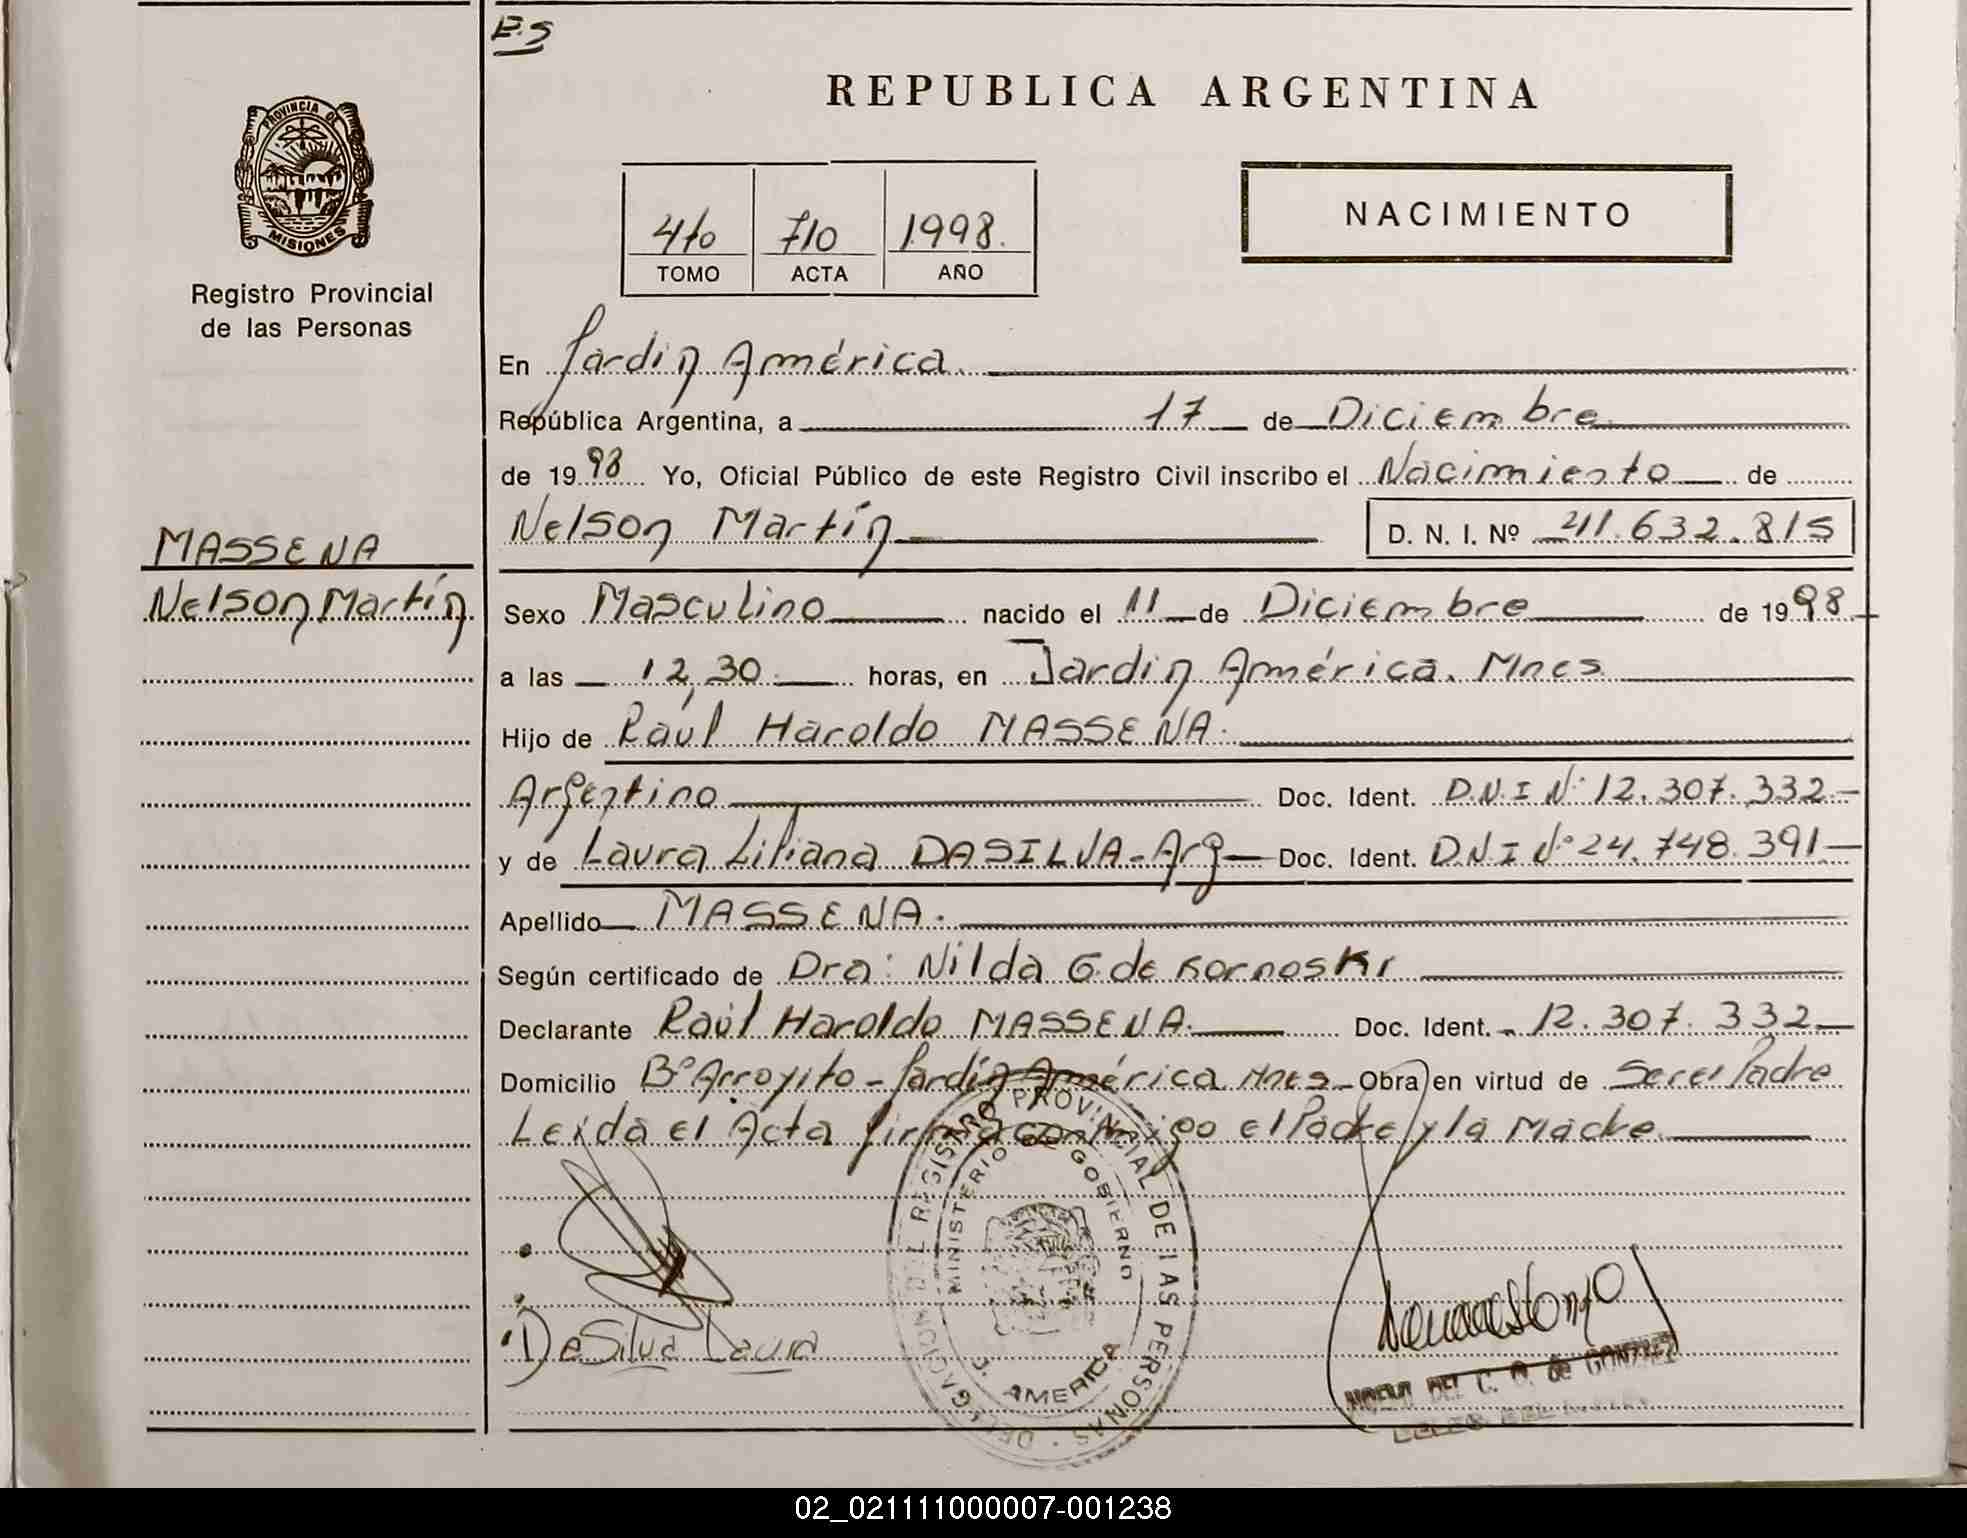 E.S
REPUBLICA ARGENTINA
PROVINCIA DE
MISIONES
Registro Provincial
de las Personas
4to 710 1998.
TOMO ACTA AÑO
NACIMIENTO
En Jardin América.
República Argentina, a 17 de Diciembre
de 1998 Yo, Oficial Público de este Registro Civil inscribo el Nacimiento de
Nelson Martín D. N. I. Nº 41.632.815
MASSENA
Nelson Martín
Sexo Masculino nacido el 11 de Diciembre de 1998
a las 12,30 horas, en Jardin América. Mnes
Hijo de Raúl Haroldo MASSENA.
Argentino Doc. Ident. D.N.I Nº 12.307.332
y de Laura Liliana DASILVA - Arg Doc. Ident. D.N.I Nº 24.748.391
Apellido MASSENA.
Según certificado de Dra: Nilda G. de Kornoski
Declarante Raúl Haroldo MASSENA. Doc. Ident. 12.307.332
Domicilio Bº Arroyito - Jardín América Mnes Obra en virtud de Ser el Padre
Leída el Acta firma conmigo el Padre y la Madre
DELEGACION DEL REGISTRO PROVINCIAL DE LAS PERSONAS
MINISTERIO DE GOBIERNO
J. AMERICA
DeSilva Laura
DEL C. O. de GONZALEZ
02_021111000007-001238